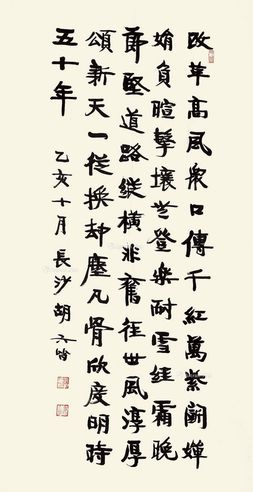 改革高風衆口傳千紅萬紫闘嬋
娟負暄擊壤登樂耐雪經霜晚
節堅道路縱橫非舊徑世風淳厚
頌新天一從換却塵凡骨欣度明時
五十年
乙亥十月長沙胡六皆